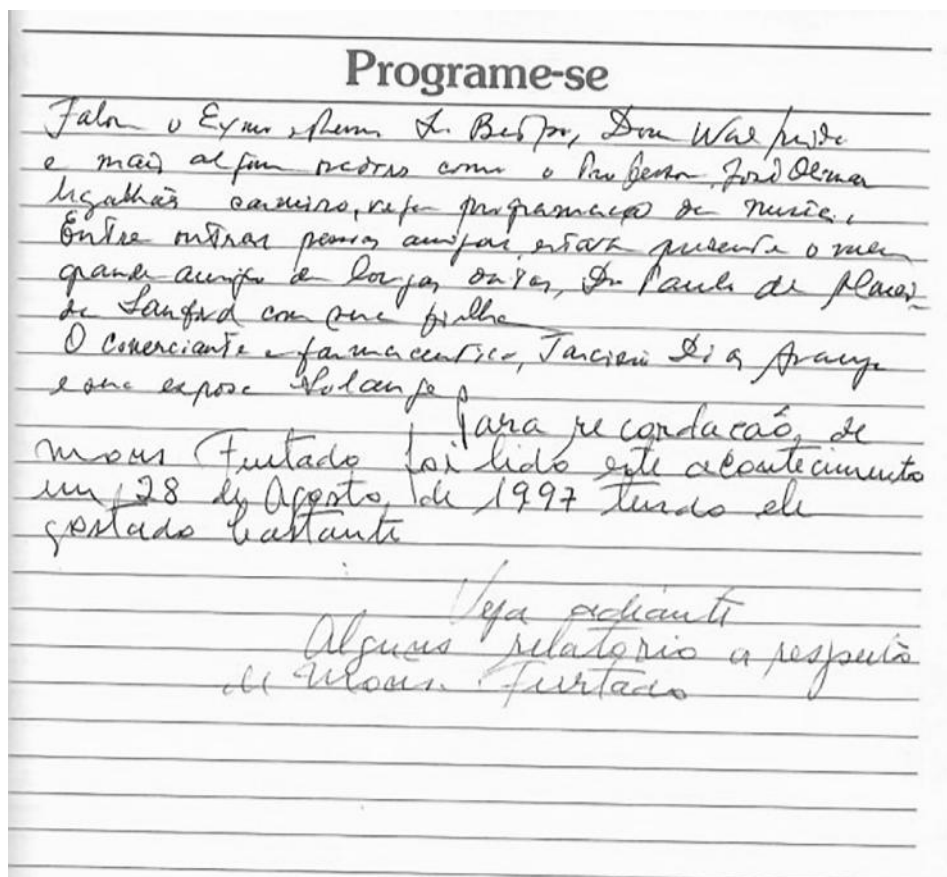 Programe-se
Falou o Exmo Revmo Sr. Bispo, Dom Walfrido
e mais alguns como o Professor José Olimar
carneiro, veja programação de
Entre outras pessoas amigas, estava presente o meu
grande amigo de longas datas, Dr Paulo de
de Sanford com sua filha
O comerciante e farmaceutico, Tarcisio Dias Araujo
e sua esposa Solange
Para recordação, de
mons Furtado foi lido este acontecimento
em 28 de Agosto, de 1997 tendo ele
gostado bastante
Veja adiante
Alguns relatorio a respeito
de Mons. Furtado